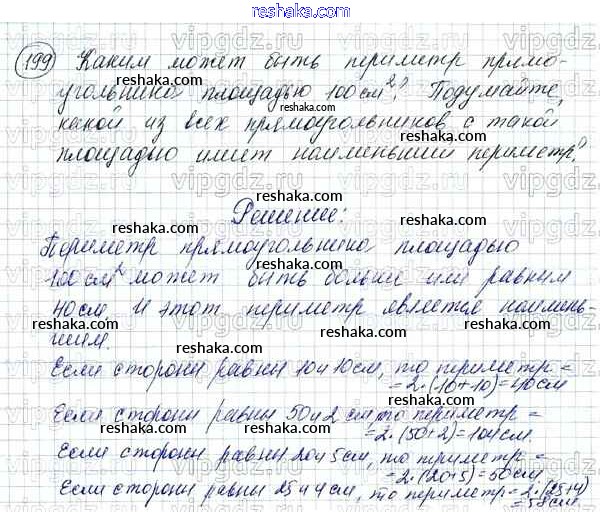 reshaka.com
199 Каким может быть периметр прямо-
угольника площадью 100 см²? Подумайте,
какой из всех прямоугольников с такой
площадью имеет наименьший периметр?
Решение:
Периметр прямоугольника площадью
100 см² может быть больше или равным
40 см. И этот периметр является наимень-
шим.
Если стороны равны 10 и 10 см, то периметр =
= 2·(10+10)=40 см
Если стороны равны 50 и 2 см то периметр =
= 2·(50+2)=104 см.
Если стороны равны 20 и 5 см, то периметр =
= 2·(20+5)=50 см.
Если стороны равны 25 и 4 см, то периметр = 2·(25+4)
= 58 см.